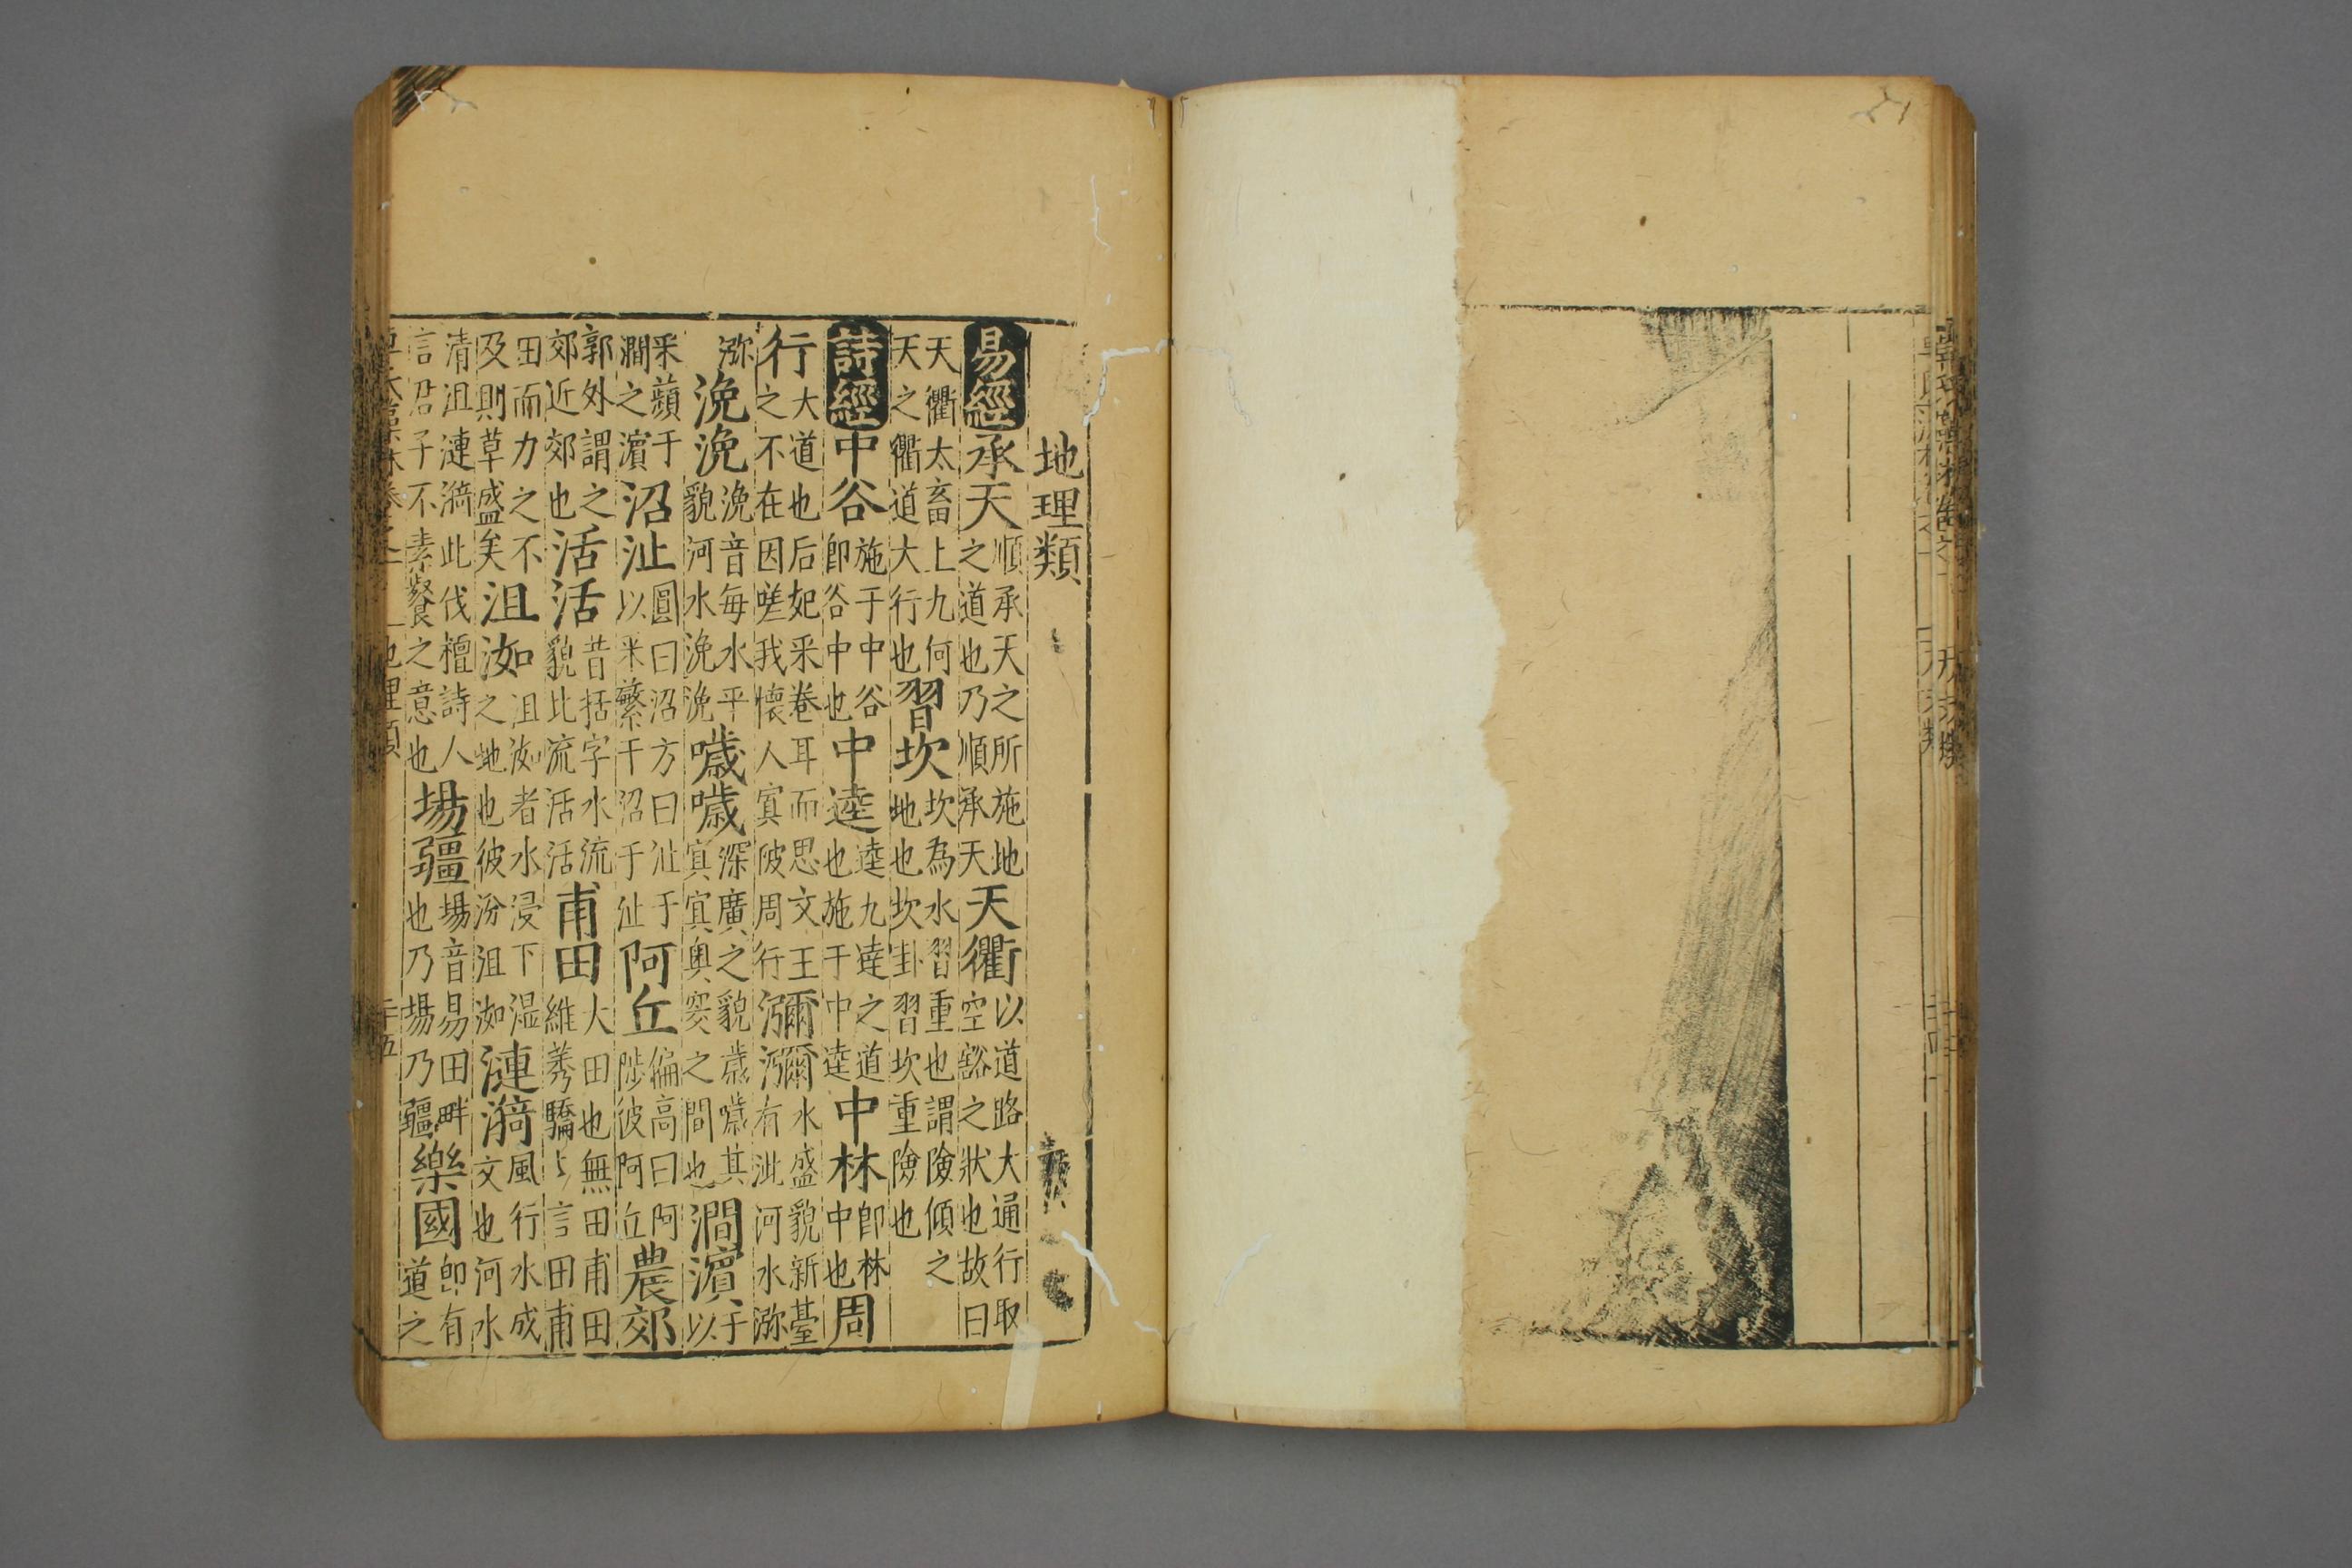 地理類
易經承天順承天之所施地之道也乃順承天天衢以道路大通行取空豁之狀也故曰
天衢太畜上九何天之衢道大行也習坎坎為水習重也謂險傾之地也坎卦習坎重險也
詩經中谷施于中谷即谷中也中逵逵九達之道也施于中逵中林即林中也周
行大道也后妃采卷耳而思文王之不在因嗟我懷人寘彼周行瀰瀰水盛貌新臺有泚河水㳽
㳽浼浼浼音每水平貌河水浼浼噦噦深廣之貌噦噦其奧窔之間也澗濱于以
采蘋于澗之濱沼沚圓曰沼方曰沚于以采蘩于沼于沚阿丘偏高曰阿陟彼阿丘農郊
郭外謂之郊近郊也活活昔括字水流貌比流活活甫田大田也無田甫田維莠驕〻言田甫
田而力之不及則草盛矣沮洳沮洳者水浸下湿之地也彼汾沮洳漣漪風行水成文也河水
清沮漣漪此伐檀詩人言君子不素餐之意也場疆場音易田畔也乃場乃疆樂國即有道之
地理類 二十五